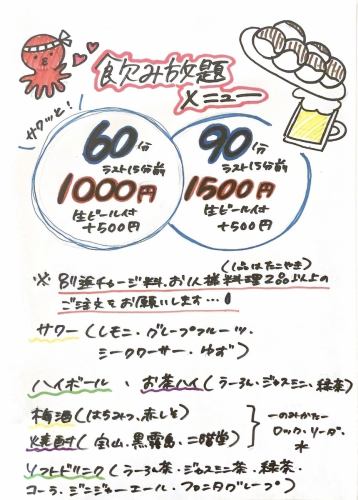 飲み放題
メニュー
サクッと!
60分
ラスト15分前
1000円
生ビール付
+500円
90分
ラスト15分前
1500円
生ビール付
+500円
(1品はたこやき)
※ 別途チャージ料、お1人様料理2品以上の
ご注文をお願いします…!
サワー(レモン・グレープフルーツ・
シークワーサー・ゆず)
ハイボール、お茶ハイ(うーろん・ジャスミン・緑茶)
梅酒(はちみつ、赤しそ)
焼酎(宝山、黒霧島、二階堂)
ーのみかたー
ロック・ソーダ・
ソフトドリンク(うーろん茶・ジャスミン茶・緑茶・
コーラ・ジンジャーエール・ファンタグレープ)